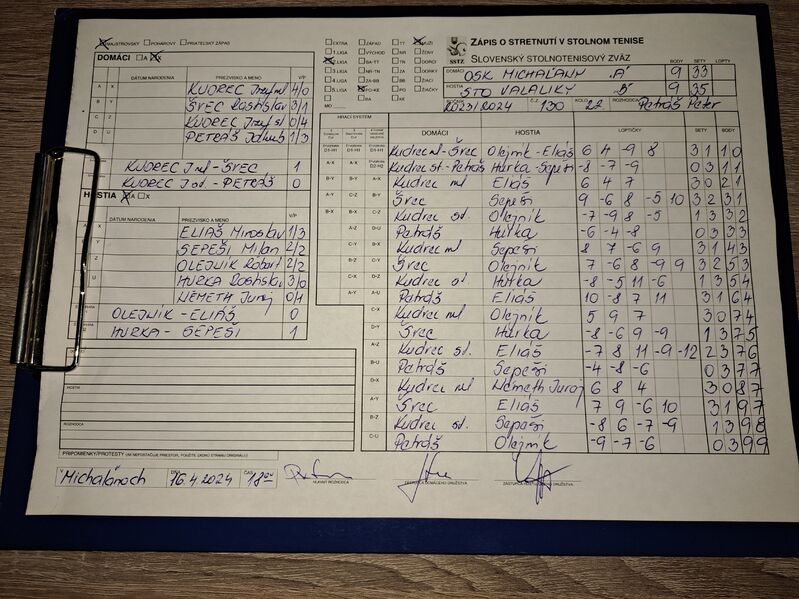 MAJSTROVSKÝ POHÁROVÝ PRIATEĽSKÝ ZÁPAS
DOMÁCI A X
DÁTUM NARODENIA PRIEZVISKO A MENO V/P
A X KUDREC Jozef ml 4/0
B Y ŠVEC Rastislav 3/1
C Z KUDREC Jozef st 0/4
D U PETRÁŠ Jakub 1/3
KUDREC J ml - ŠVEC 1
KUDREC J st - PETRÁŠ 0
HOSTIA A X
DÁTUM NARODENIA PRIEZVISKO A MENO V/P
ELIÁŠ Miroslav 1/3
SEPEŠI Milan 2/2
OLEJNÍK Robert 2/2
HURKA Rastislav 3/0
NÉMETH Juraj 0/1
OLEJNÍK - ELIÁŠ 0
HURKA - SEPEŠI 1
HOSTIA
ROZHODCA
PRIPOMIENKY/PROTESTY (AK NEPOSTAČUJE PRIESTOR, POUŽITE ZADNÚ STRANU ORIGINÁLU)
V Michaľanoch DŇA 16.4.2024 ČAS 18 00
HLAVNÝ ROZHODCA
ZÁSTUPCA DOMÁCEHO DRUŽSTVA
ZÁSTUPCA HOSŤUJÚCEHO DRUŽSTVA
EXTRA ZÁPAD TT MUŽI
1.LIGA VÝCHOD NR ŽENY
2.LIGA BA-TT TN DORCI
3.LIGA NR-TN ZA DORKY
4.LIGA ZA-BB BB ŽIACI
5.LIGA PO-KE PO ŽIAČKY
BA KE
MO
SSTZ
ZÁPIS O STRETNUTÍ V STOLNOM TENISE
SLOVENSKÝ STOLNOTENISOVÝ ZVÄZ
BODY SETY LOPTY
DOMÁCI OSK MICHAĽANY "A" 9 33
HOSTIA STO VALALIKY "B" 9 35
2023/2024 Č. 130 KOLO 22 ROZHODCA Petráš Peter
HRACÍ SYSTÉM
DOMÁCI HOSTIA LOPTIČKY SETY BODY
Kudrec ml - Švec Olejník - Eliáš 6 4 -9 8 3 1 1 0
Kudrec st - Petráš Hurka - Sepeši -8 -7 -9 0 3 1 1
Kudrec ml Eliáš 6 4 7 3 0 2 1
Švec Sepeši 9 -6 8 -5 10 3 2 3 1
Kudrec st. Olejník -7 -9 8 -5 1 3 3 2
Petráš Hurka -6 -4 -8 0 3 3 3
Kudrec ml Sepeši 8 7 -6 9 3 1 4 3
Švec Olejník 7 -6 8 -9 9 3 2 5 3
Kudrec st. Hurka -8 -5 11 -6 1 3 5 4
Petráš Eliáš 10 -8 7 11 3 1 6 4
Kudrec ml Olejník 5 9 7 3 0 7 4
Švec Hurka -8 -6 9 -9 1 3 7 5
Kudrec st. Eliáš -7 8 11 -9 -12 2 3 7 6
Petráš Sepeši -4 -8 -6 0 3 7 7
Kudrec ml Németh Juraj 6 8 4 3 0 8 7
Švec Eliáš 7 9 -6 10 3 1 9 7
Kudrec st. Sepeši -8 6 -7 -9 1 3 9 8
Petráš Olejník -9 -7 -6 0 3 9 9